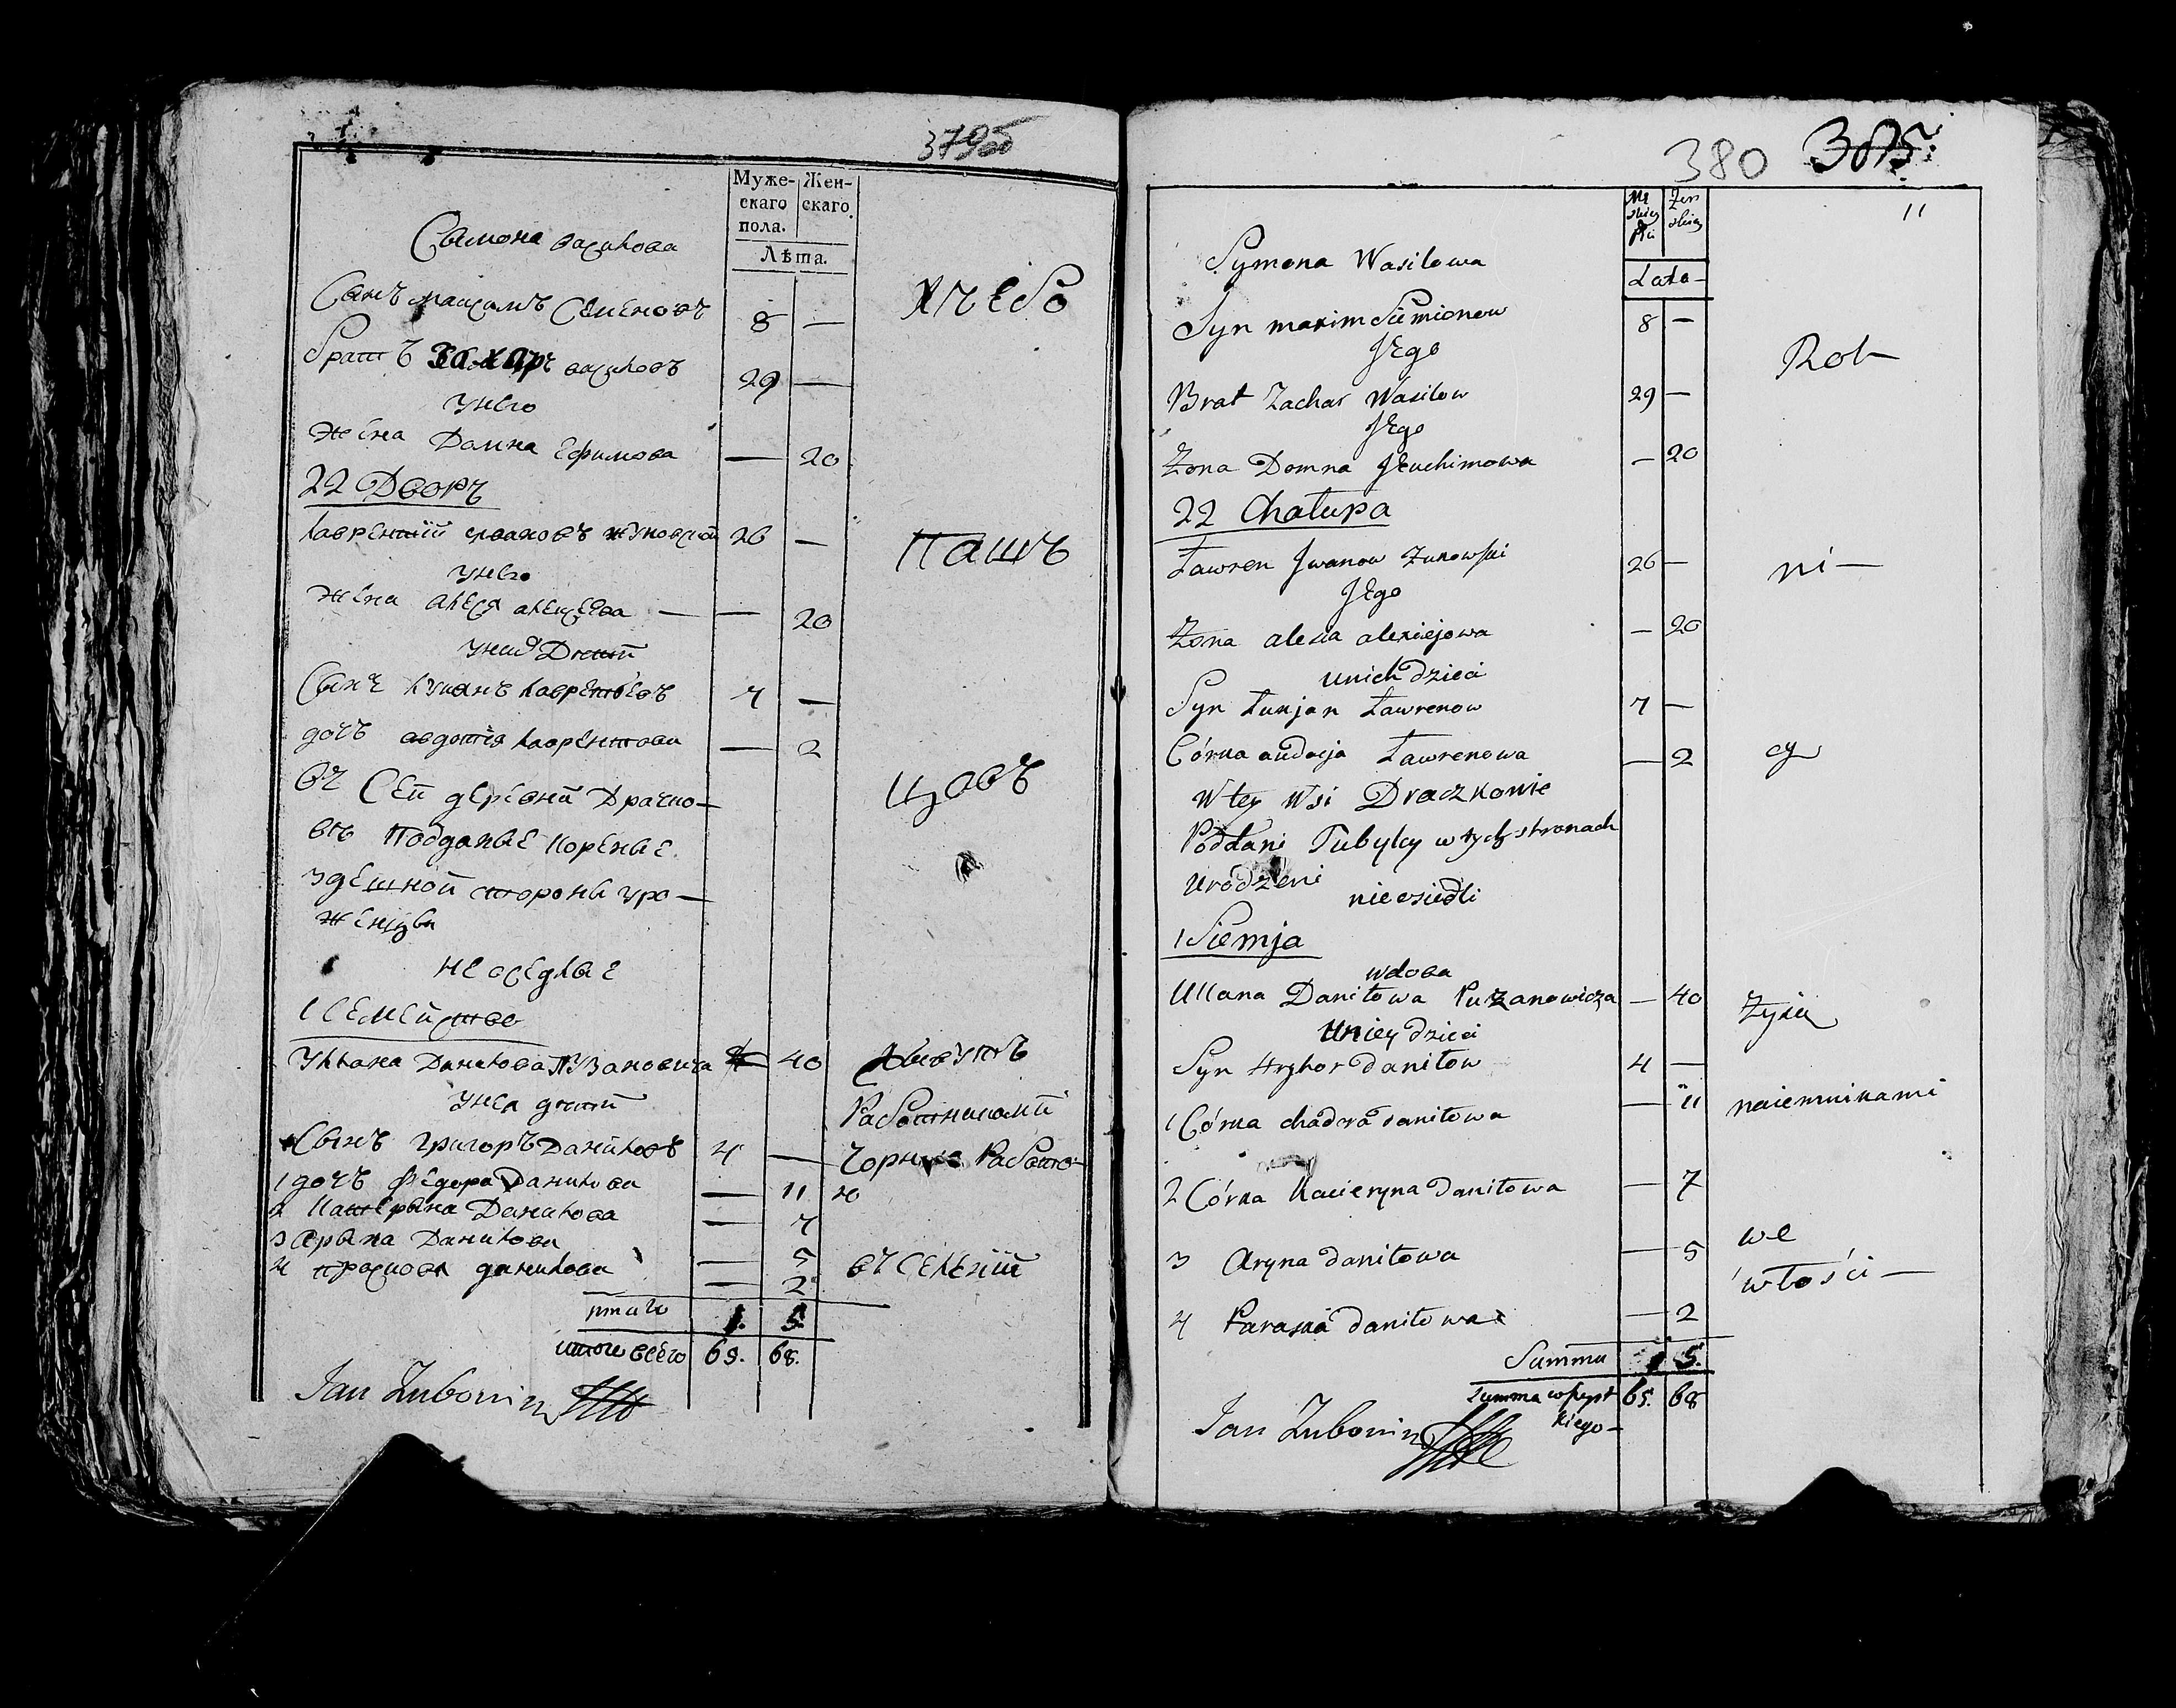 379об
Муже- Жен-
скаго скаго.
пола.
Лѣта.
Сымона василова
Сынъ максимъ Семеновъ 8 —
хлебо
братъ Захаръ василовъ 29 —
унего
жена Домна Ефимова — 20
22 Дворъ
лаврентий ивановъ жуковский 26 —
пашъ
унего
жена алеся алексеева — — 20
уних Дети
Сынъ лукянъ лаврентьевъ 7 —
дочь авдотия лаврентова — 2
цовъ
въ Сей деревни Драчко-
въ Подданые кореные
здешной стороны уро-
женцы
не оседлые
1 семейство
уллана Данилова Пузановича — 40 живутъ
унея дети
работниками
Сынъ григоръ Даниловъ 4 —
чорную работо-
1 дочь федора Данилова — 11 ю
2 Катерына Данилова — 7
3 Арына Данилова — 5
4 прасковя данилова — 2
въ Селении
итого 1. 5.
итого всего 65. 68.
Jan Zubowicz
380 385.
11
Mę Żen
skiej skiej
Płci
Lata
Symona Wasilowa
Syn maxim Siemionow 8 —
Jego
Rol-
Brat Zachar Wasilow 29 —
Jego
Żona Domna Jeuchimowa — 20
22 Chałupa
Ławren Jwanow Żukowski 26 —
ni-
Jego
Żona alesia alexiejowa — 20
unich dzieci
Syn Łukjan Ławrenow 7 —
Córka audocja Ławrenowa — 2
cy
W tey Wsi Draczkowie
Poddani Tubylcy w tych stronach
urodzeni
nieosiedli
1 Siemja
wdowa
Ullana Daniłowa Puzanowicza — 40
Żyią
uniey dzieci
Syn Hryhor daniłow 4 —
1 Córka chadora daniłowa — 11
naiemnikami
2 Córka Kacieryna daniłowa — 7
we
3 Aryna daniłowa — 5
włości —
4 Paraska daniłowa — 2
Summa 1 5.
Summa wszyst 65. 68
kiego —
Jan Zubowicz